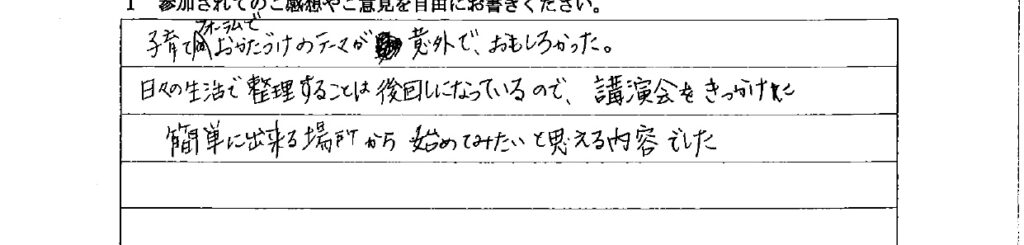 1 参加されてのご感想やご意見を自由にお書きください。
子育てフォーラムでおかたづけのテーマが意外で、おもしろかった。
日々の生活で整理することは後回しになっているので、講演会をきっかけに
簡単に出来る場所から始めてみたいと思える内容でした